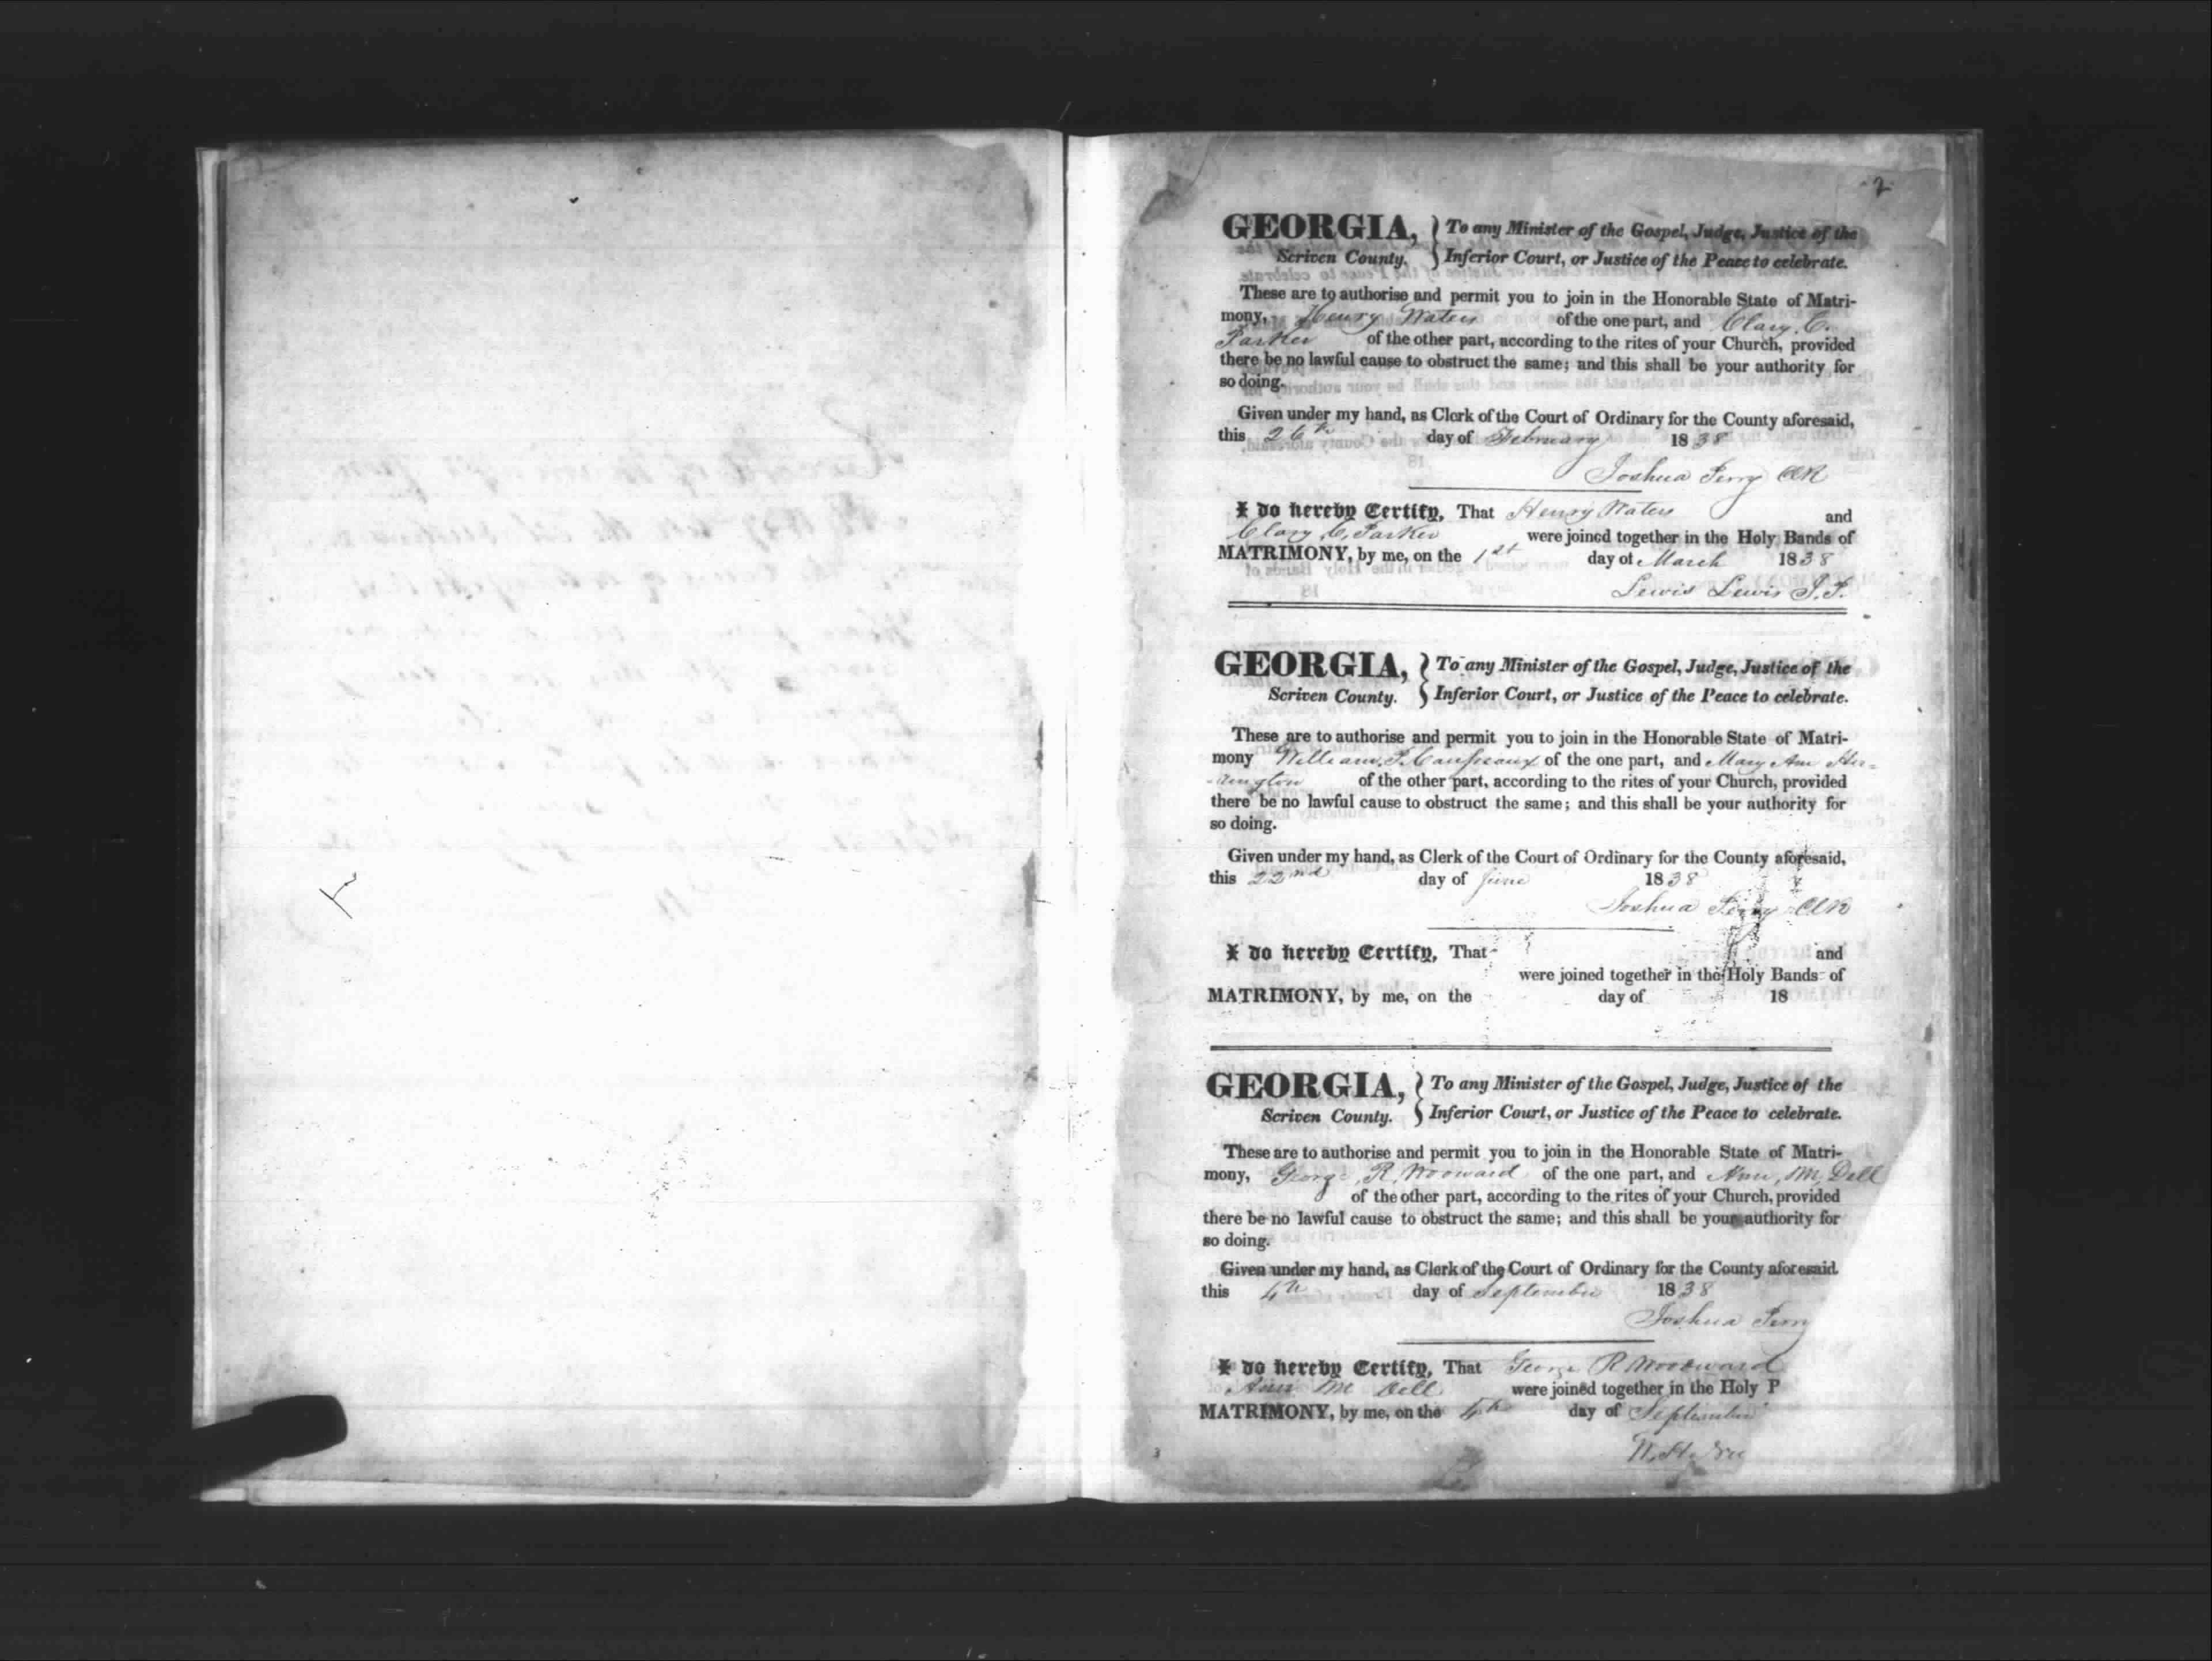 2
GEORGIA, } To any Minister of the Gospel, Judge, Justice of the
Scriven County. } Inferior Court, or Justice of the Peace to celebrate.
These are to authorise and permit you to join in the Honorable State of Matri-
mony, Henry Waters of the one part, and Clary C.
Parker of the other part, according to the rites of your Church, provided
there be no lawful cause to obstruct the same; and this shall be your authority for
so doing.
Given under my hand, as Clerk of the Court of Ordinary for the County aforesaid,
this 26th day of February 1838
Joshua Perry
I do hereby Certify, That Henry Waters and
Clary C. Parker were joined together in the Holy Bands of
MATRIMONY, by me, on the 1st day of March 1838
Lewis Lewis J.P.
GEORGIA, } To any Minister of the Gospel, Judge, Justice of the
Scriven County. } Inferior Court, or Justice of the Peace to celebrate.
These are to authorise and permit you to join in the Honorable State of Matri-
mony William of the one part, and Mary Ann Her-
rington of the other part, according to the rites of your Church, provided
there be no lawful cause to obstruct the same; and this shall be your authority for
so doing.
Given under my hand, as Clerk of the Court of Ordinary for the County aforesaid,
this 22nd day of June 1838
Joshua Perry
I do hereby Certify, That and
were joined together in the Holy Bands of
MATRIMONY, by me, on the day of 18
GEORGIA, } To any Minister of the Gospel, Judge, Justice of the
Scriven County. } Inferior Court, or Justice of the Peace to celebrate.
These are to authorise and permit you to join in the Honorable State of Matri-
mony, George R. Wooward of the one part, and Ann, M, Dell
of the other part, according to the rites of your Church, provided
there be no lawful cause to obstruct the same; and this shall be your authority for
so doing.
Given under my hand, as Clerk of the Court of Ordinary for the County aforesaid
this 4th day of September 1838
Joshua Perry
I do hereby Certify, That George R Wooward
Ann M Dell were joined together in the Holy
MATRIMONY, by me, on the 4th day of September